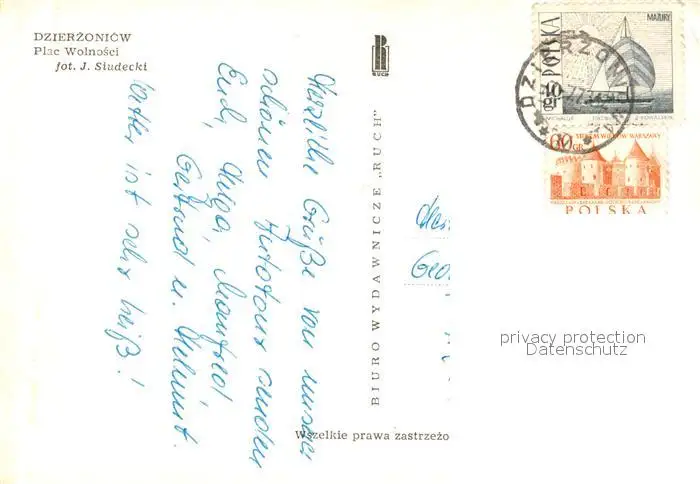 DZIERŻONIÓW
Plac Wolności
fot. J. Siudecki
RUCH
BIURO WYDAWNICZE „RUCH"
Wszelkie prawa zastrzeżo
Herzliche Grüße von unserer
schönen Autotour senden
Euch, Helga, Manfred
Gertrud u. Helmut.
Wetter ist sehr heiß!
Geo
MAZURY
POLSKA
40 gr
DZIERŻON
60 GR
SIEDEM WIEKÓW WARSZAWY
POLSKA
privacy protection
Datenschutz